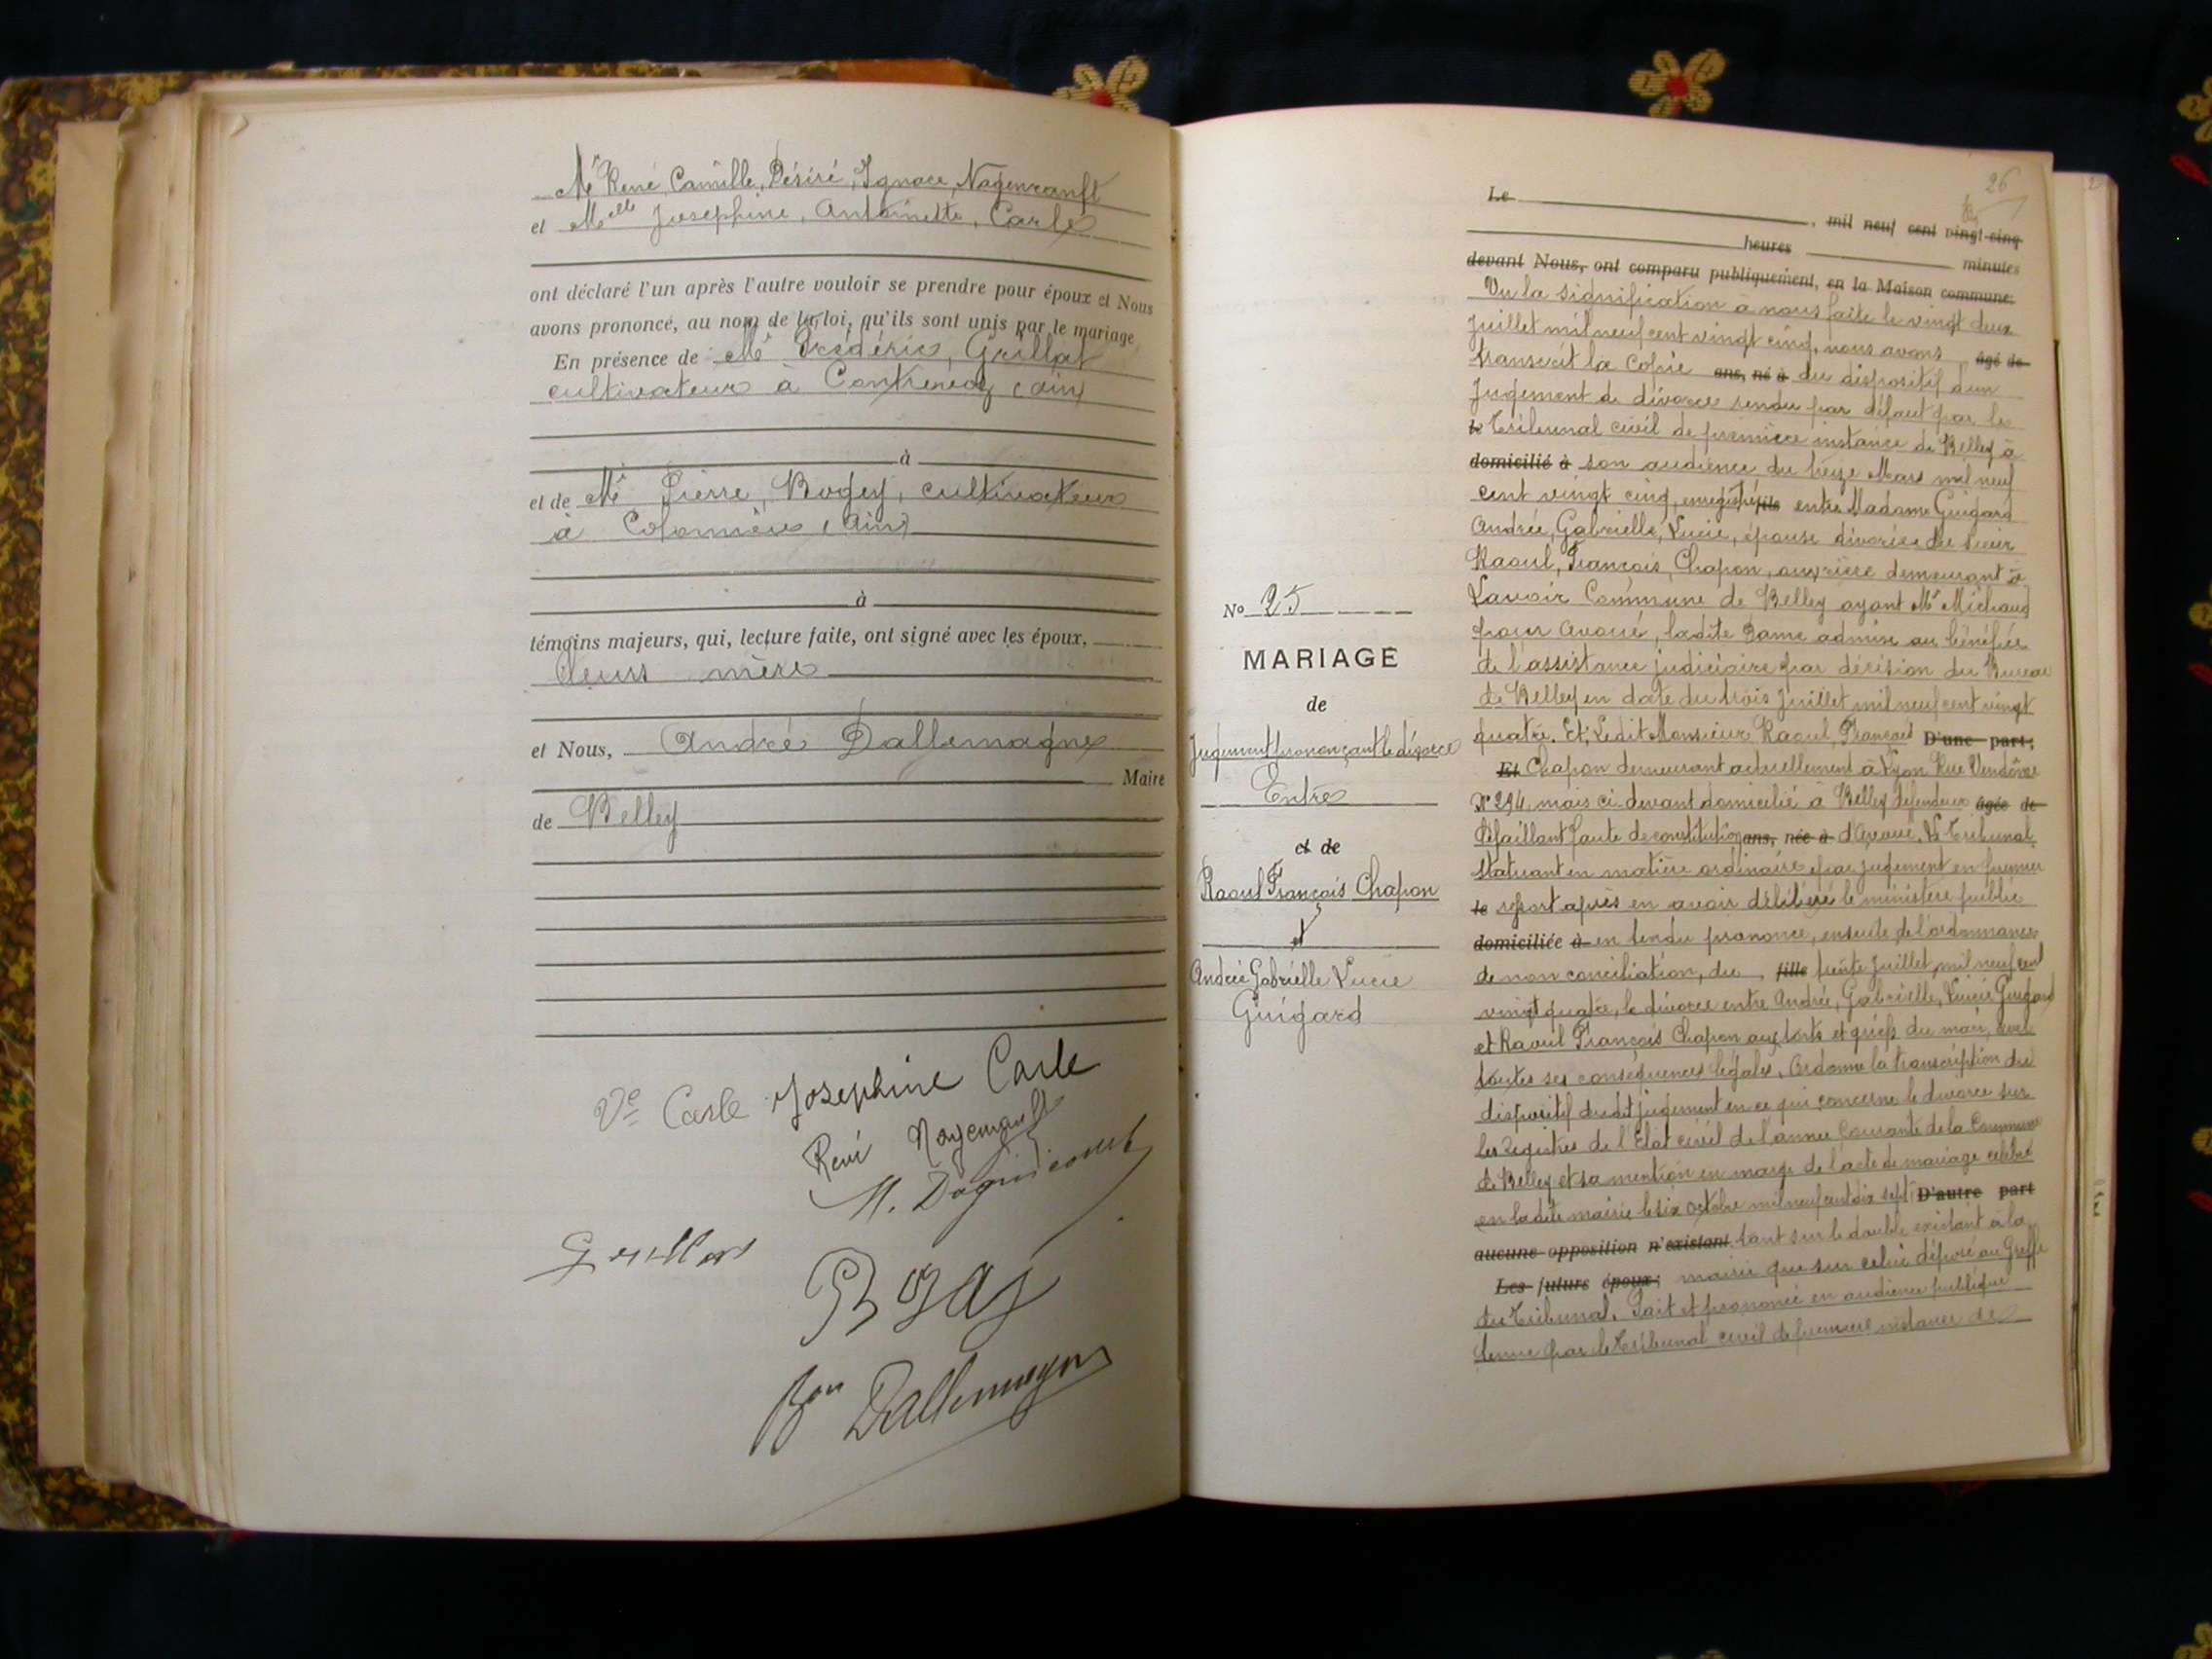 Mr René, Camille, Désiré, Ignace, Nagenranft
et Melle Josephine, Antoinette, Carle
ont déclaré l'un après l'autre vouloir se prendre pour époux et Nous
avons prononcé, au nom de la loi, qu'ils sont unis par le mariage
En présence de Mr Frédéric, Grillat
cultivateur à Contrevoz (Ain)
à
et de Mr Pierre, Bogey, cultivateur
à (Ain)
à
témoins majeurs, qui, lecture faite, ont signé avec les époux,
leurs mère
et Nous, André Dallemagne
Maire
de Belley
Ve Carle Josephine Carle
René
Bon Dallemagne
No 25
MARIAGE
de
Jugement prononçant le divorce
Entre
et de
Raoul François Chapon
et
Andrée Gabrielle Lucie
Guigard
26
Le , mil neuf cent vingt-cinq
heures minutes
devant Nous, ont comparu publiquement, en la Maison commune:
Vu la signification à nous faite le vingt deux
Juillet mil neuf cent vingt cinq, nous avons âgé de
transcrit la copie ans, né à du dispositif d'un
Jugement de divorce rendu par défaut par le
le Tribunal civil de première instance de Belley à
domicilié à son audience du treize Mars mil neuf
cent vingt cinq, enregistré fils entre Madame Guigard
Andrée, Gabrielle, Lucie, épouse divorcée du sieur
Raoul, François, Chapon, ouvrière demeurant à
Lavoir Commune de Belley ayant Me Michaud
pour avoué, ladite Dame admise au bénéfice
de l'assistance judiciaire par décision du Bureau
de Belley en date du trois Juillet mil neuf cent vingt
quatre. Et, Ledit Monsieur Raoul, François D'une part;
Et Chapon demeurant actuellement à Lyon Rue Vendôme
No 294, mais ci-devant domicilié à Belley défendeur âgée de
Défaillant faute de constitution ans, née à d'avoué. Le Tribunal
Statuant en matière ordinaire par jugement en premier
le ressort après en avoir délibéré le ministère public
domiciliée à entendu prononce, ensuite de l'ordonnance
de non conciliation, du fille trente Juillet mil neuf cent
vingt quatre, le divorce entre Andrée, Gabrielle, Lucie Guigard
et Raoul François Chapon aux torts et griefs du mari, avec
toutes ses conséquences légales, Ordonne la transcription du
dispositif dudit jugement en ce qui concerne le divorce sur
les registres de l'Etat civil de l'année Courante de la Commune
de Belley et sa mention en marge de l'acte de mariage célébré
en ladite mairie le six octobre mil neuf cent dix sept D'autre part
aucune opposition n'existant tant sur le double existant à la
Les futurs époux: mairie que sur celui déposé au Greffe
du Tribunal. Fait et prononcé en audience publique
tenue par le Tribunal civil de première instance de